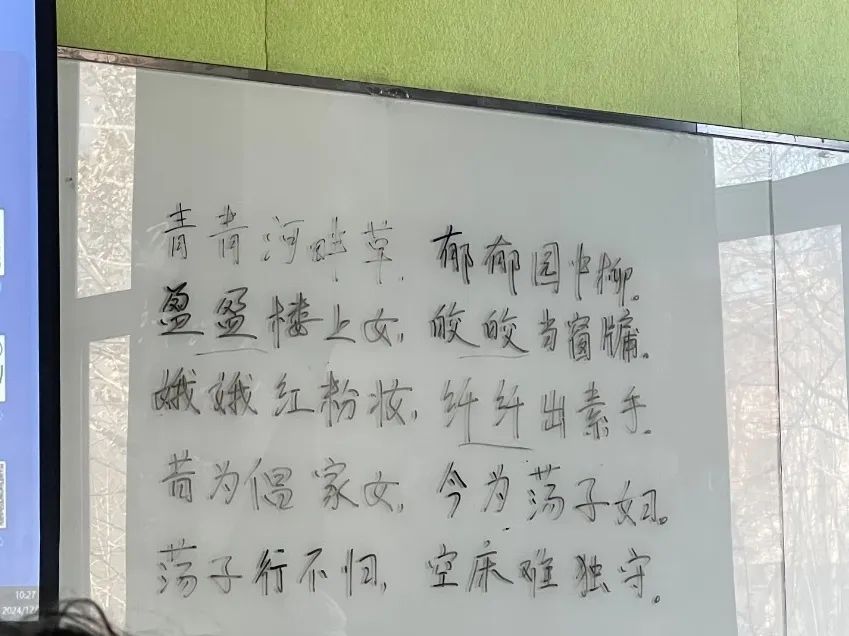 青青河畔草,郁郁园中柳。
盈盈楼上女,皎皎当窗牖。
娥娥红粉妆,纤纤出素手。
昔为倡家女,今为荡子妇。
荡子行不归,空床难独守。
10:27